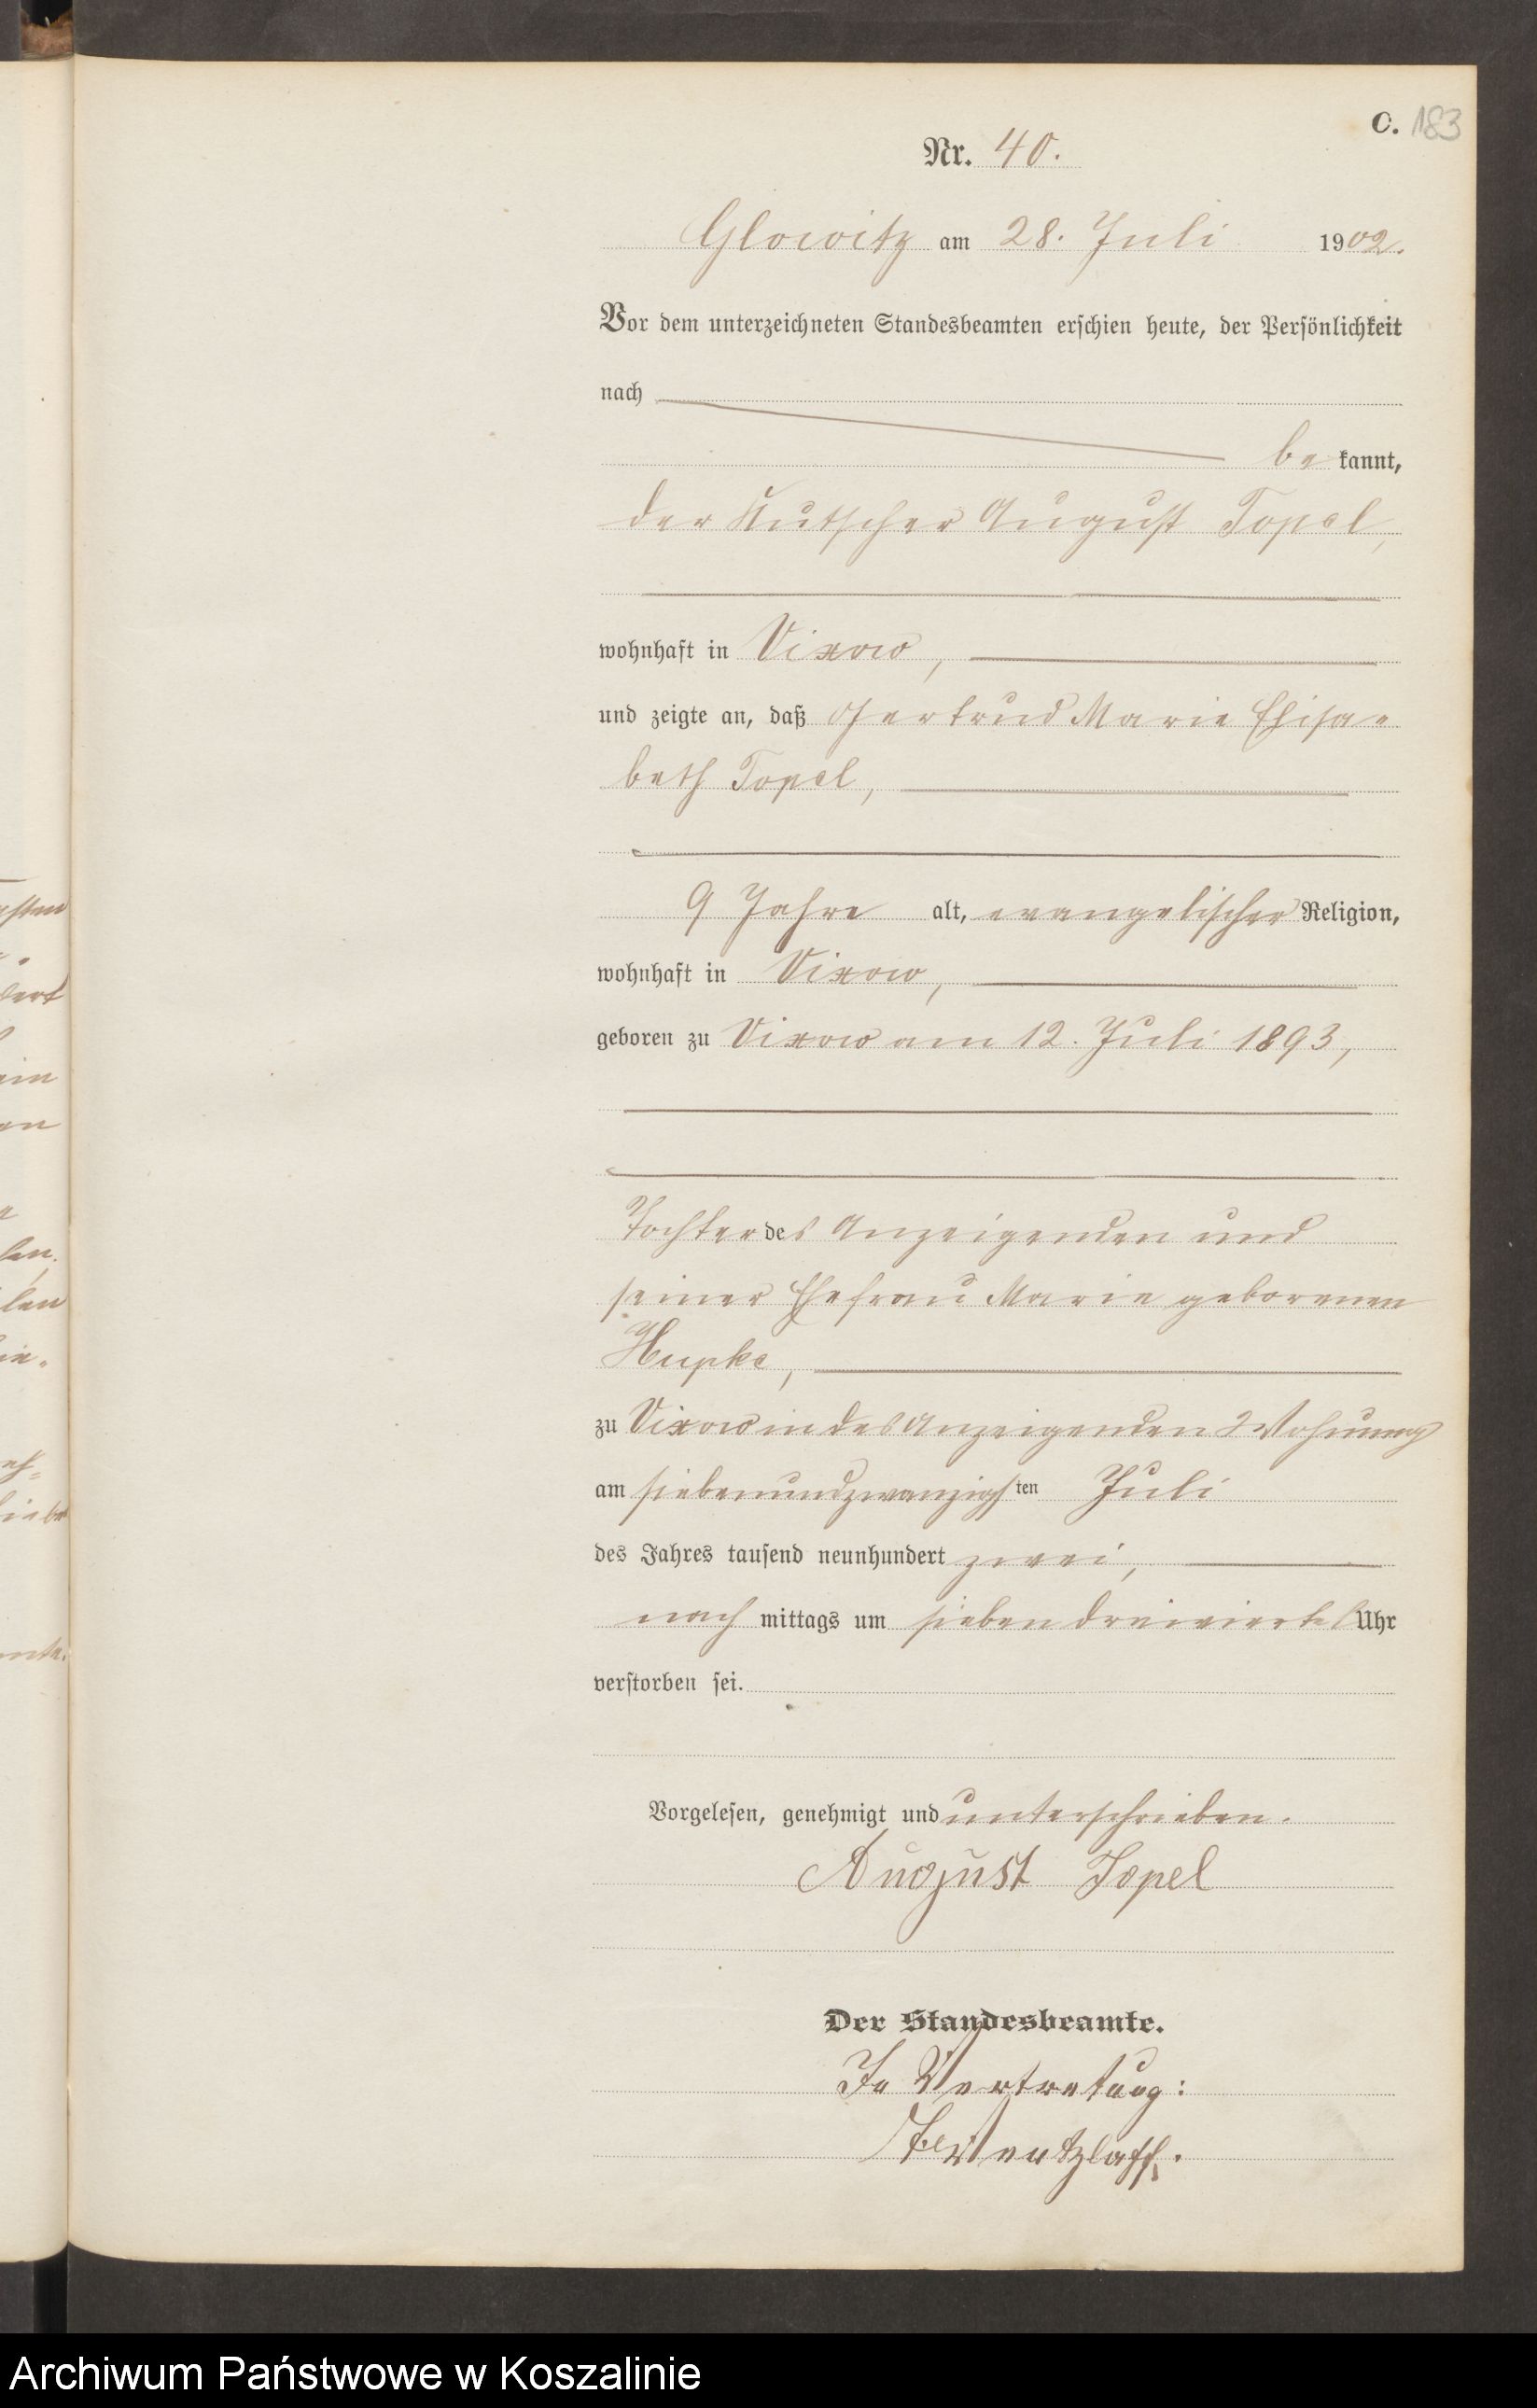 C. 183
Nr. 40.
Glowitz am 28. Juli 1902.
Vor dem unterzeichneten Standesbeamten erschien heute, der Persönlichkeit
nach
be kannt,
der Kutscher August Topel,
wohnhaft in Vixow,
und zeigte an, daß Gertrud Marie Elisa-
beth Topel,
9 Jahre alt, evangelischer Religion,
wohnhaft in Vixow,
geboren zu Vixow am 12. Juli 1893,
Tochter des Anzeigenden und
seiner Ehefrau Marie geborenen
Hupke,
zu Vixow in des Anzeigenden Wohnung
am siebenundzwanzigsten Juli
des Jahres tausend neunhundert zwei,
nach mittags um sieben dreiviertel Uhr
verstorben sei.
Vorgelesen, genehmigt und unterschrieben.
August Topel
Der Standesbeamte.
In Vertretung:
Wentzlaff.
Archiwum Państwowe w Koszalinie